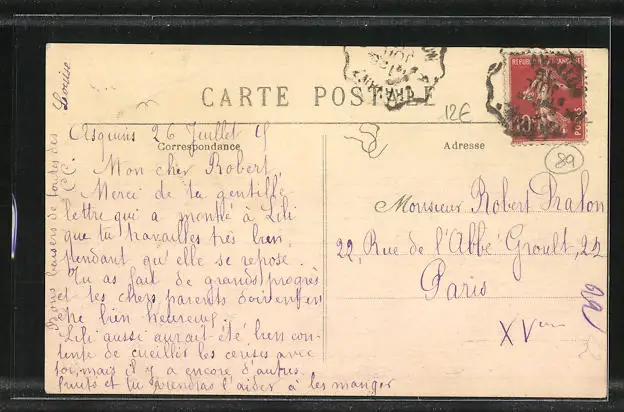 CARTE POSTALE
Correspondance
Adresse
REPUBLIQUE FRANÇAISE
POSTES
12€
89
Asquins 26 Juillet 15
Mon cher Robert,
Merci de ta gentille
lettre qui a montré à Lili
que tu travailles très bien,
pendant qu'elle se repose.
Tu as fait de grands progrès
et tes chers parents doivent en
être bien heureux.
Lili aussi aurait été bien con-
tente de cueillir les cerises avec
toi, mais il y a encore d'autres
fruits et tu viendras l'aider à les manger
Bons baisers de toutes des
Louise
Monsieur Robert
22, Rue de l'Abbé Groult, 22
Paris
XVeme